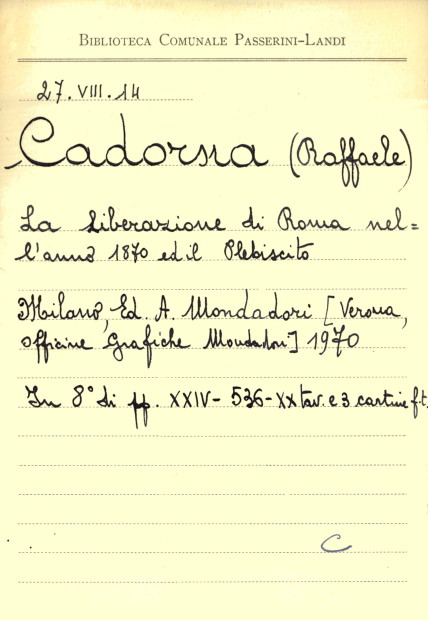 BIBLIOTECA COMUNALE PASSERINI-LANDI
27.VIII.14
Cadorna (Raffaele)
La Liberazione di Roma nel=
l'anno 1870 ed il Plebiscito
Milano, Ed. A. Mondadori [Verona,
Officine Grafiche Mondadori] 1970
In 8° di pp. XXIV-536-XX tav. e 3 cartine f.t.
C